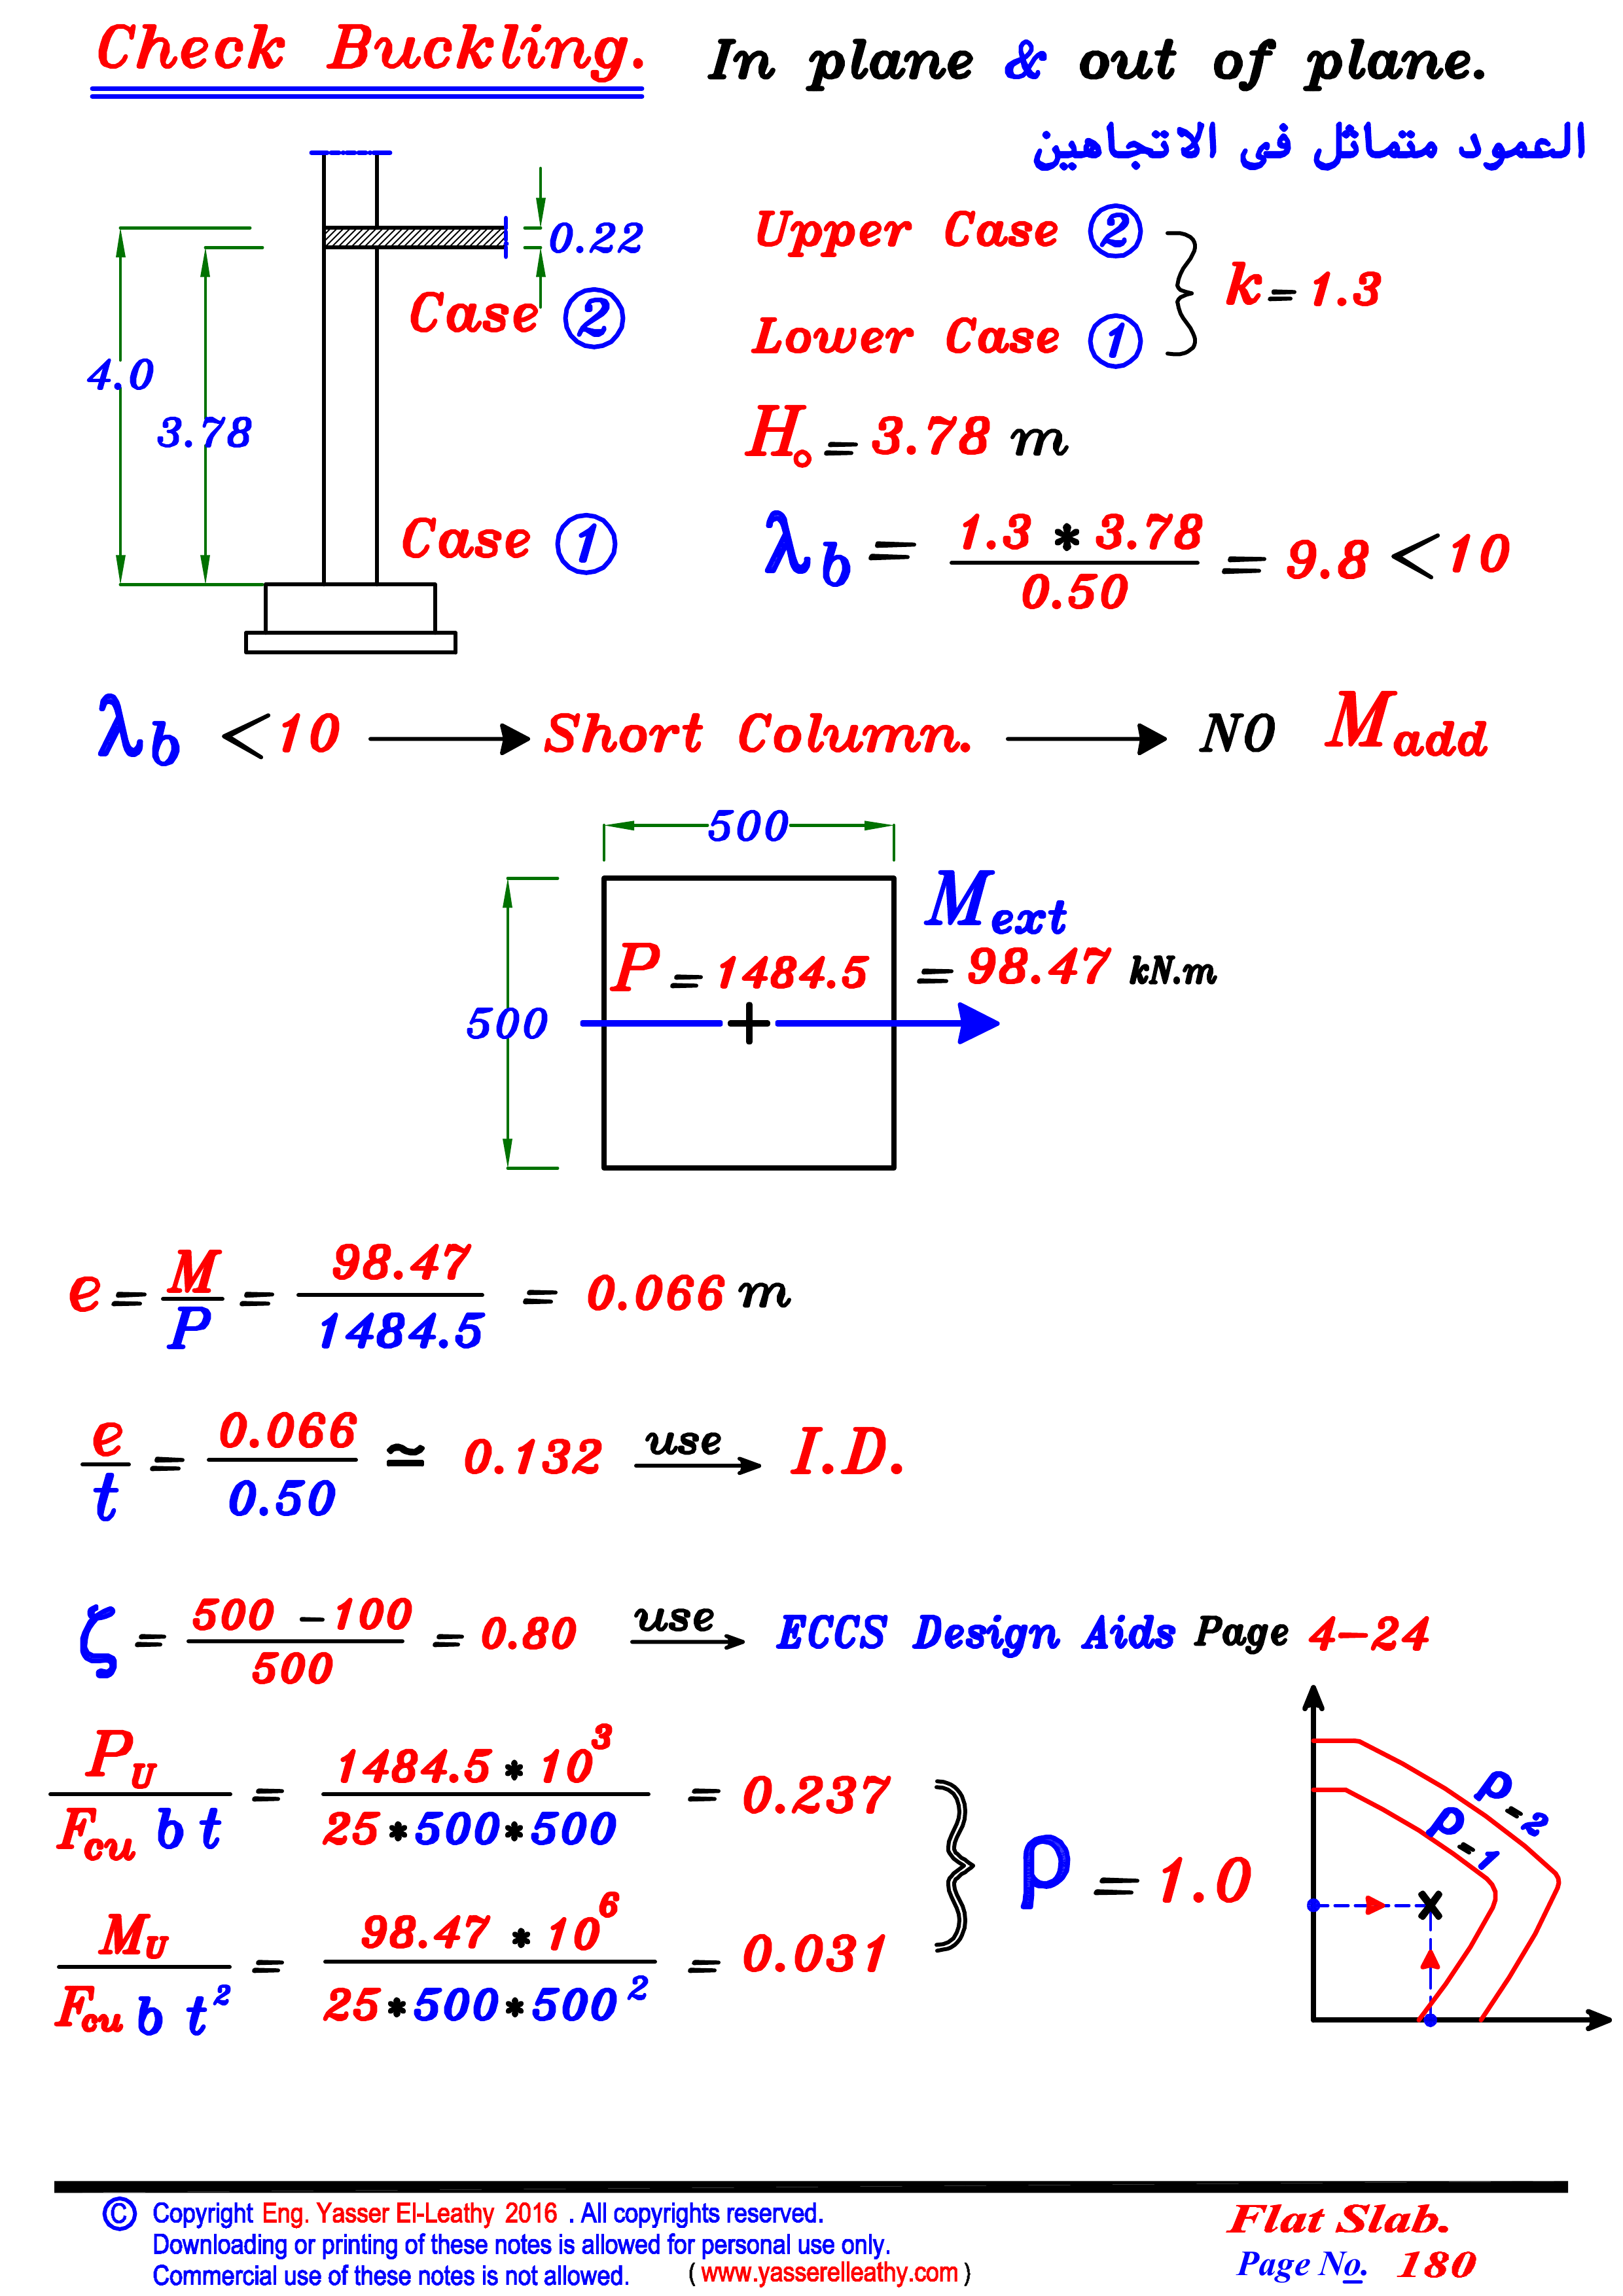 Check Buckling. In plane & out of plane.
العمود متماثل فى الاتجاهين
0.22
4.0
3.78
Case 2
Case 1
Upper Case 2
Lower Case 1
k = 1.3
H₀ = 3.78 m
λb = 1.3 * 3.78 / 0.50 = 9.8 < 10
λb < 10 → Short Column. → NO Madd
500
500
P = 1484.5
Mext
= 98.47 kN.m
e = M / P = 98.47 / 1484.5 = 0.066 m
e / t = 0.066 / 0.50 ≃ 0.132 use → I.D.
ζ = 500 - 100 / 500 = 0.80 use → ECCS Design Aids Page 4-24
PU / Fcu b t = 1484.5 * 10³ / 25 * 500 * 500 = 0.237
MU / Fcu b t² = 98.47 * 10⁶ / 25 * 500 * 500² = 0.031
ρ = 1.0
ρ-2
ρ-1
© Copyright Eng. Yasser El-Leathy 2016 . All copyrights reserved.
Downloading or printing of these notes is allowed for personal use only.
Commercial use of these notes is not allowed. ( www.yasserelleathy.com )
Flat Slab.
Page No. 180